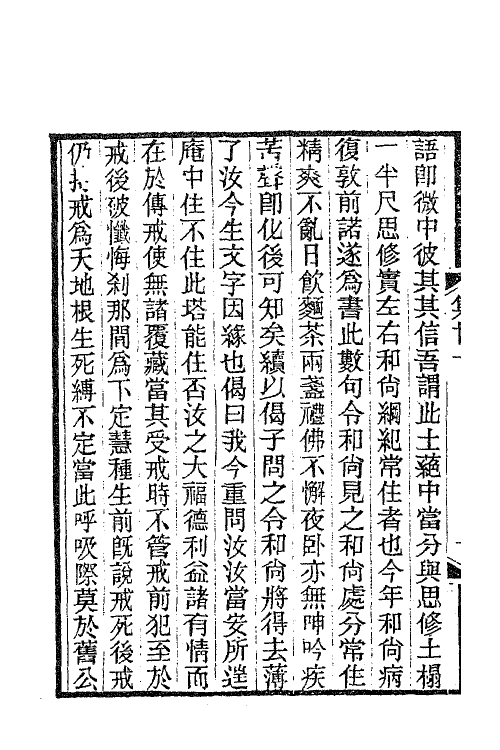 語卽微中彼其其信吾謂此土蕝中當分與思修土榻
一半尺思修實左右和尙綱紀常住者也今年和尙病
復敦前諾遂爲書此數句令和尙見之和尙處分常住
精爽不亂日飮麵茶兩盞禮佛不懈夜卧亦無呻吟疾
苦聲卽化後可知矣續以偈子問之令和尙將得去薄
了汝今生文字因緣也偈曰我今重問汝汝當安所逬
庵中住不住此塔能住否汝之大福德利益諸有情而
在於傳戒使無諸覆藏當其受戒時不管戒前犯至於
戒後破懺悔刹那間爲下定慧種生前旣說戒死後戒
仍持戒爲天地根生死縛不定當此呼吸際莫於舊公